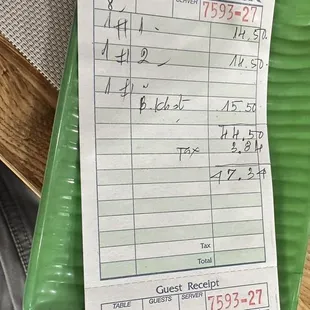 8 SERVER 7593-27
1 # 1. 14.50
1 # 2 14.50
1 #
B. kbob 15.50
44.50
TAX 3.84
47.34
Tax
Total
Guest Receipt
TABLE GUESTS SERVER 7593-27